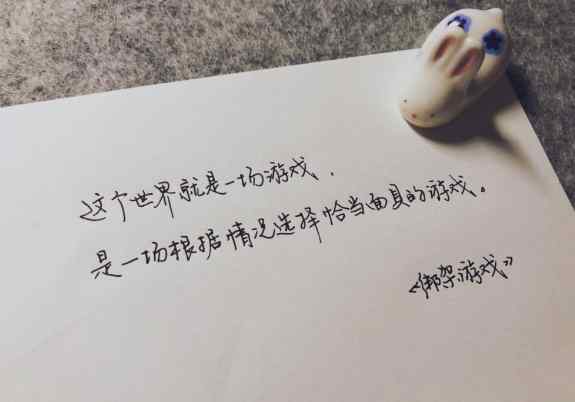 这个世界就是一场游戏，
是一场根据情况选择恰当面具的游戏。
《绑架游戏》